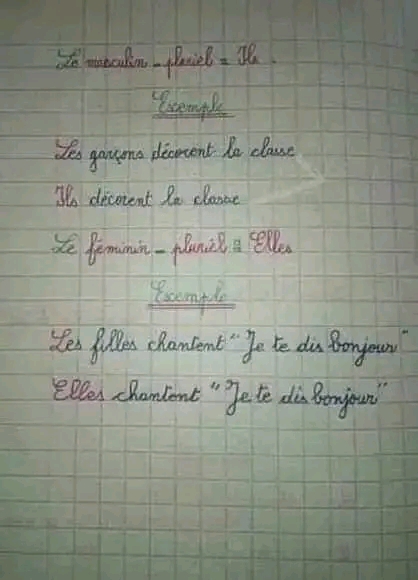 Le masculin - pluriel = Ils.
Exemple
Les garçons décorent la classe
Ils décorent la classe
Le féminin - pluriel = Elles
Exemple
Les filles chantent "Je te dis bonjour"
Elles chantent "Je te dis bonjour"